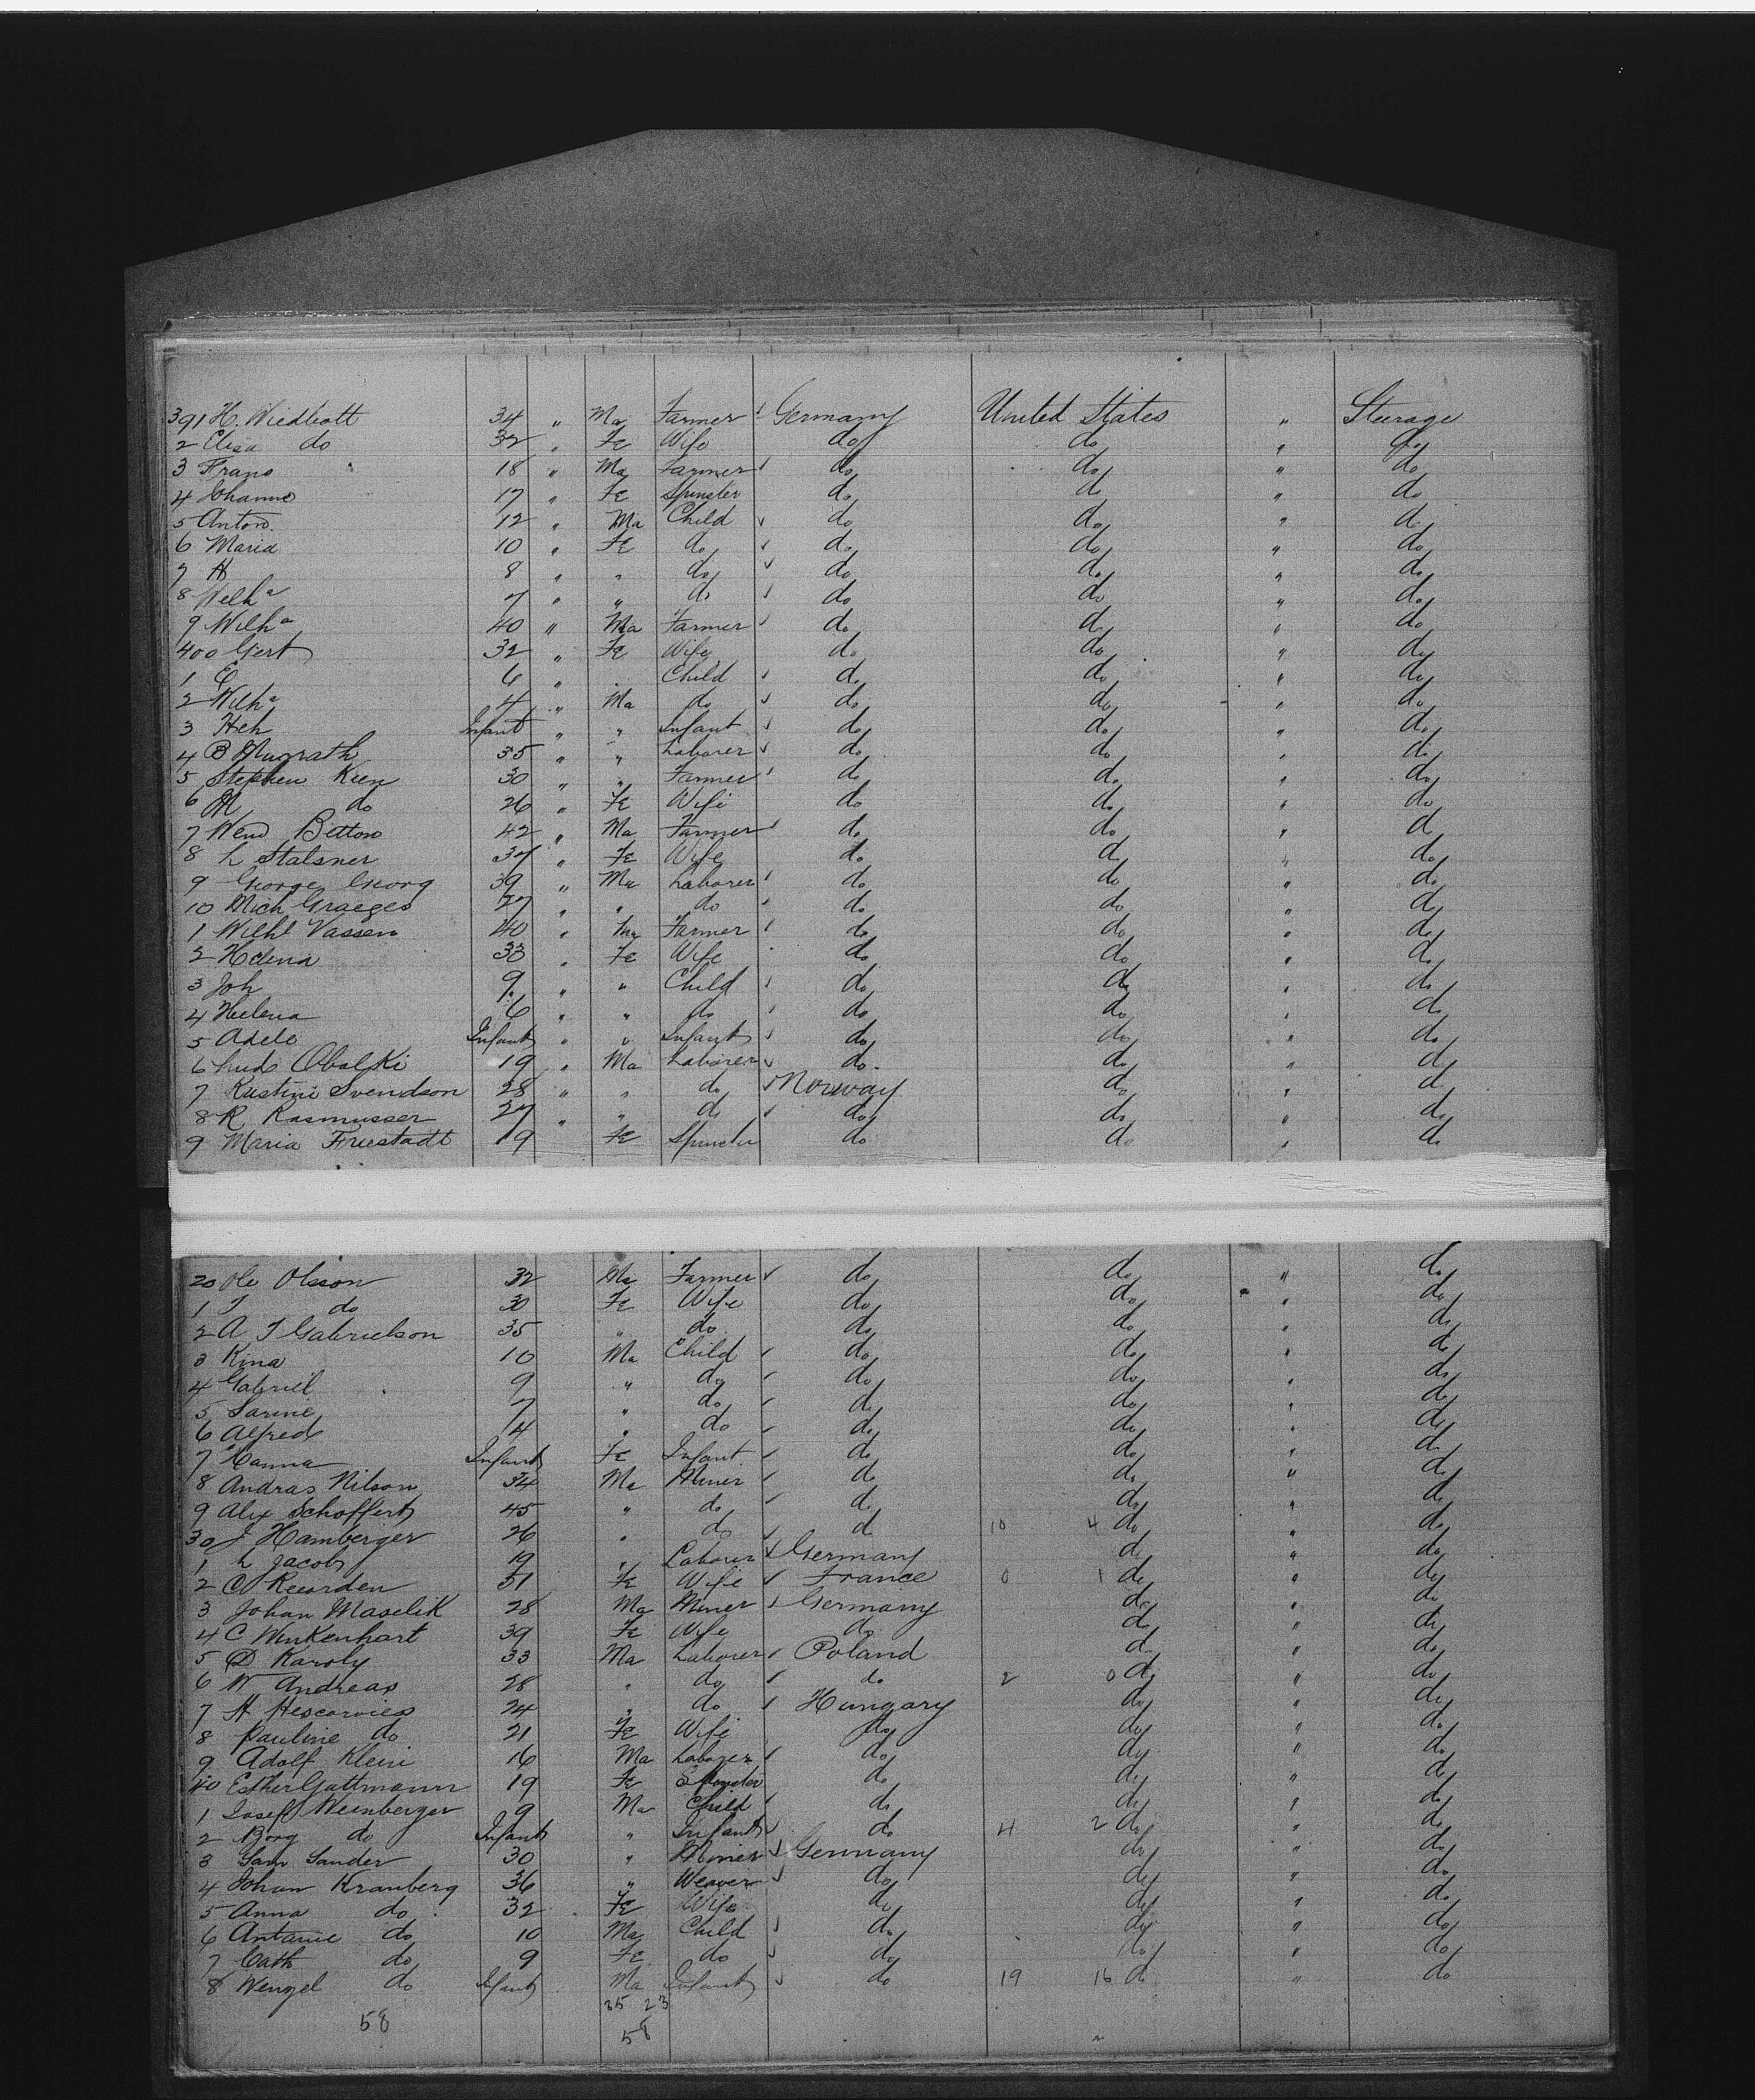 391 H. Wiedbott 34 " Ma Farmer Germany United States " Steerage
2 Elisa do 32 " Fe Wife do do " do
3 Frans 18 " Ma Farmer do do " do
4 Johanne 17 " Fe Spinster do do " do
5 Anton 12 " Ma Child do do " do
6 Maria 10 " Fe do do do " do
7 H 8 " " do do do " do
8 Welha 7 " " do do do " do
9 Wilha 40 " Ma Farmer do do " do
400 Gert 32 " Fe Wife do do " do
1 E 6 " Child do do " do
2 Wilha 4 " Ma do do do " do
3 Heh Infant " " Infant do do " do
4 B 35 " " Laborer do do " do
5 Stephen Kien 30 " " Farmer do do " do
6 M do 26 " Fe Wife do do " do
7 Wend Betton 42 " Ma Farmer do do " do
8 L Stalsner 37 " Fe Wife do do " do
9 George Georg 39 " Ma Laborer do do " do
10 Mich Graeges 27 " " do do do " do
1 Wilhl Vassen 40 " Ma Farmer do do " do
2 Helena 33 " Fe Wife do do " do
3 Joh 9 " " Child do do " do
4 Helena 6 " " do do do " do
5 Adele Infant " " Infant do do " do
6 Lud Obalki 19 " Ma Laborer do do " do
7 Kustini Svendson 28 " " do Norway do " do
8 R Rasmusser 27 " " do do do " do
9 Maria Friestadt 19 Fe Spinster do do " do
20 Ole Olsson 32 Ma Farmer do do " do
1 T do 30 Fe Wife do do " do
2 A T Gabrielson 35 " do do do " do
3 Kina 10 Ma Child do do " do
4 Gabriel 9 " do do do " do
5 Sarine 7 " do do do " do
6 Alfred 4 " do do do " do
7 Hanna Infant Fe Infant do do " do
8 Andras Nilson 34 Ma Miner do do " do
9 Alex Schoffert 45 " do do do " do
30 J Hamberger 26 " do do 10 4 do " do
1 L Jacob 19 " Labourer Germany do " do
2 C Reorden 31 Fe Wife France 0 1 do " do
3 Johan Maselik 28 Ma Miner Germany do " do
4 C Winkenhart 39 Fe Wife do do " do
5 D Karoly 33 Ma Laborer Poland do " do
6 W Andreas 28 " do do 2 0 do " do
7 H Hescovies 24 " do Hungary do " do
8 Pauline do 21 Fe Wife do do " do
9 Adolf Klein 16 Ma Laborer do do " do
40 Esther Guttmann 19 Fe Spinster do do " do
1 Josef Weinberger 9 Ma Child do do " do
2 Borg do Infant " Infant do 4 2 do " do
3 Sam Sander 30 " Miner Germany do " do
4 Johan Kranberg 36 " Weaver do do " do
5 Anna do 32 Fe Wife do do " do
6 Antanie do 10 Ma Child do do " do
7 Cath do 9 Fe do do do " do
8 Wenzel do Infant Ma Infant do 19 16 do " do
35 23
58 58